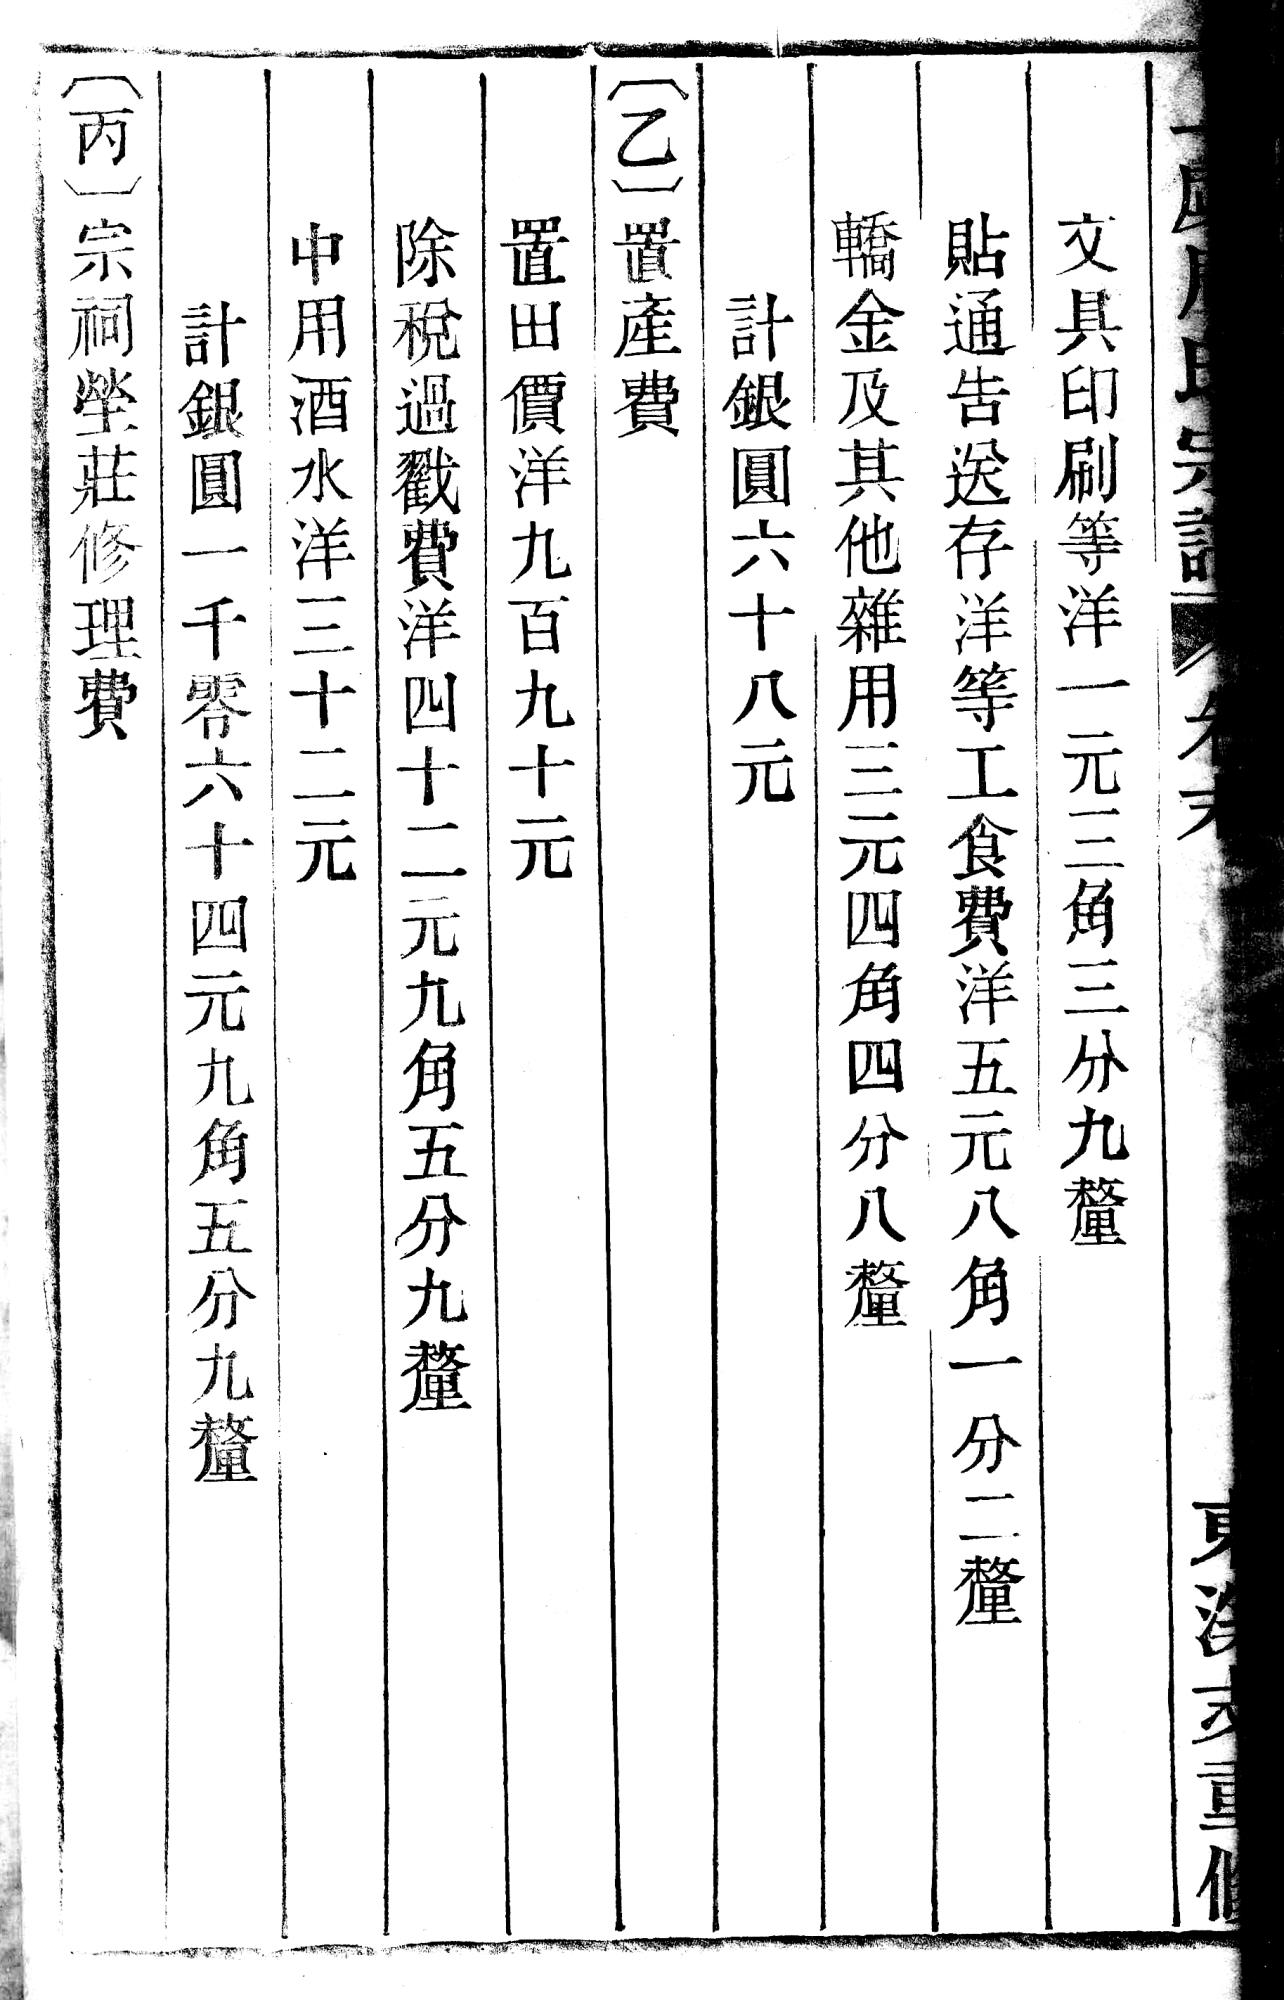 氏宗譜 卷末 東 支重修
文具印刷等洋一元三角三分九釐
貼通告送存洋等工食費洋五元八角一分二釐
轎金及其他雜用三元四角四分八釐
計銀圓六十八元
〔乙〕置產費
置田價洋九百九十元
除稅過戳費洋四十二元九角五分九釐
中用酒水洋三十二元
計銀圓一千零六十四元九角五分九釐
〔丙〕宗祠塋莊修理費